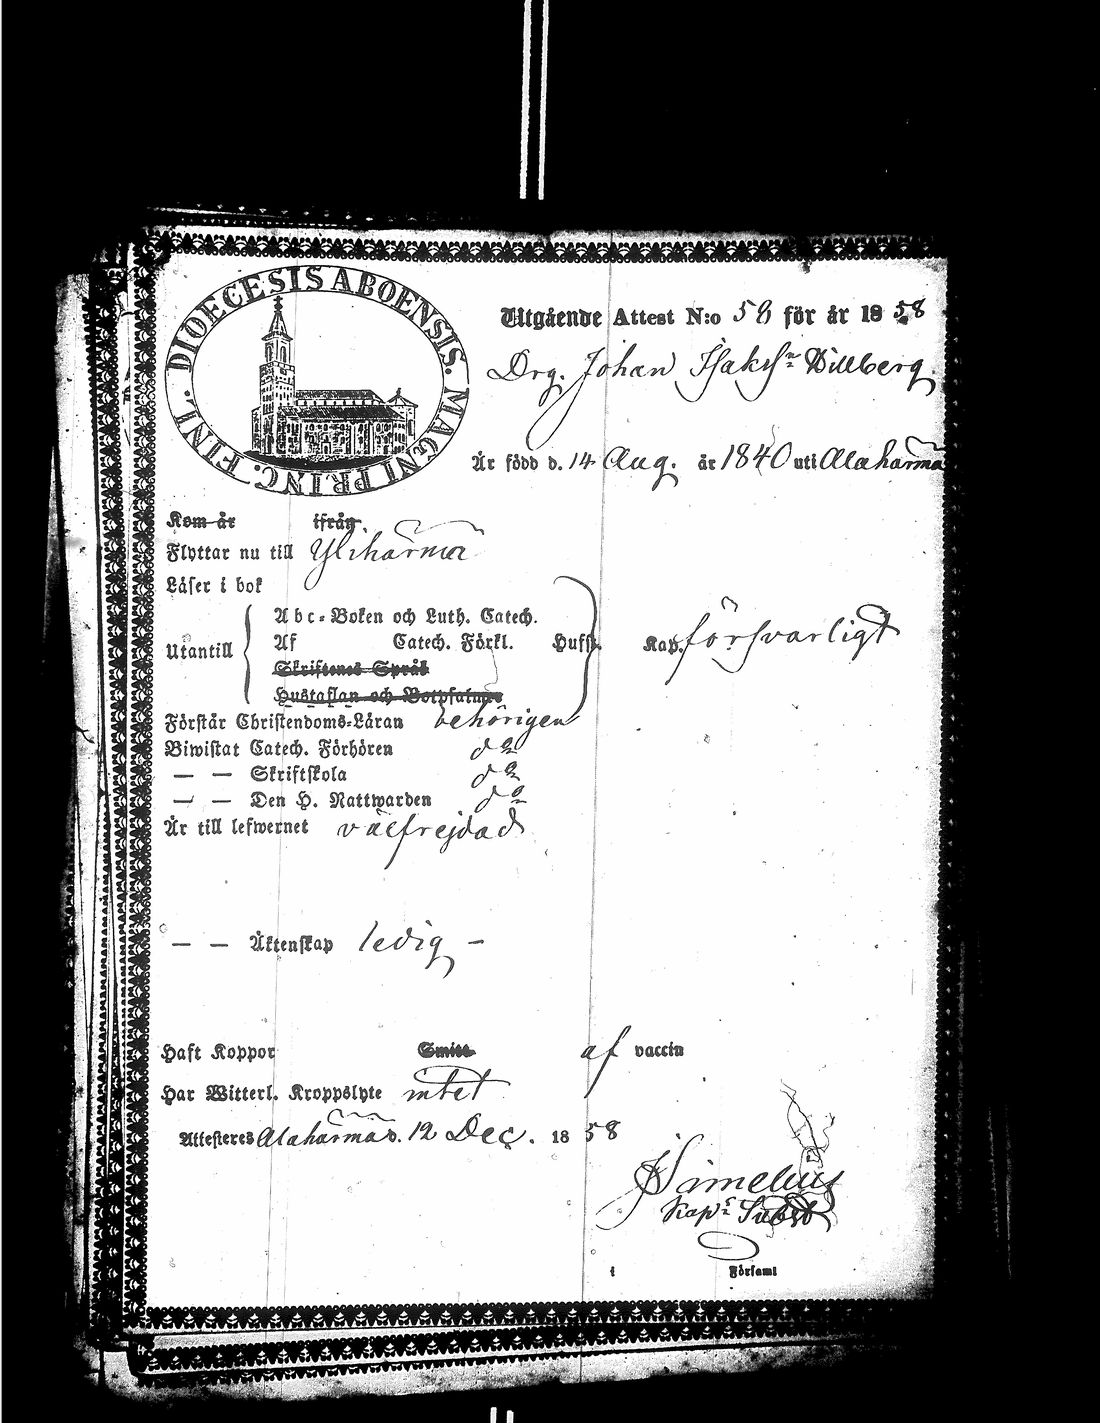 DIOECESIS ABOENSIS. MAGNI PRINC. FINL.
Utgående Attest N:o 58 för år 1858
Drg. Johan Isaks:n Willberg.
Är född d. 14 Aug. år 1840 uti Alahärmä
Kom år ifrån
Flyttar nu till Ylihärmä
Läser i bok
Utantill
Abc-Boken och Luth. Catech.
Af Catech. Förkl. Hufst. Kap. försvarligt
Skriftenes Språk
Hustaflan och Botpsalmne
Förstår Christendoms-Läran behörigen
Biwistat Catech. Förhören do
— — Skriftskola do
— — Den H. Nattwarden do
Är till lefwernet välfrejdad
— — Äktenskap ledig —
Haft Koppor Smitt af vaccin
Har Witterl. Kroppslyte intet
Attesteres Alahärmä d. 12 Dec. 1858
Simelius
Kap:s Subst
i Församl